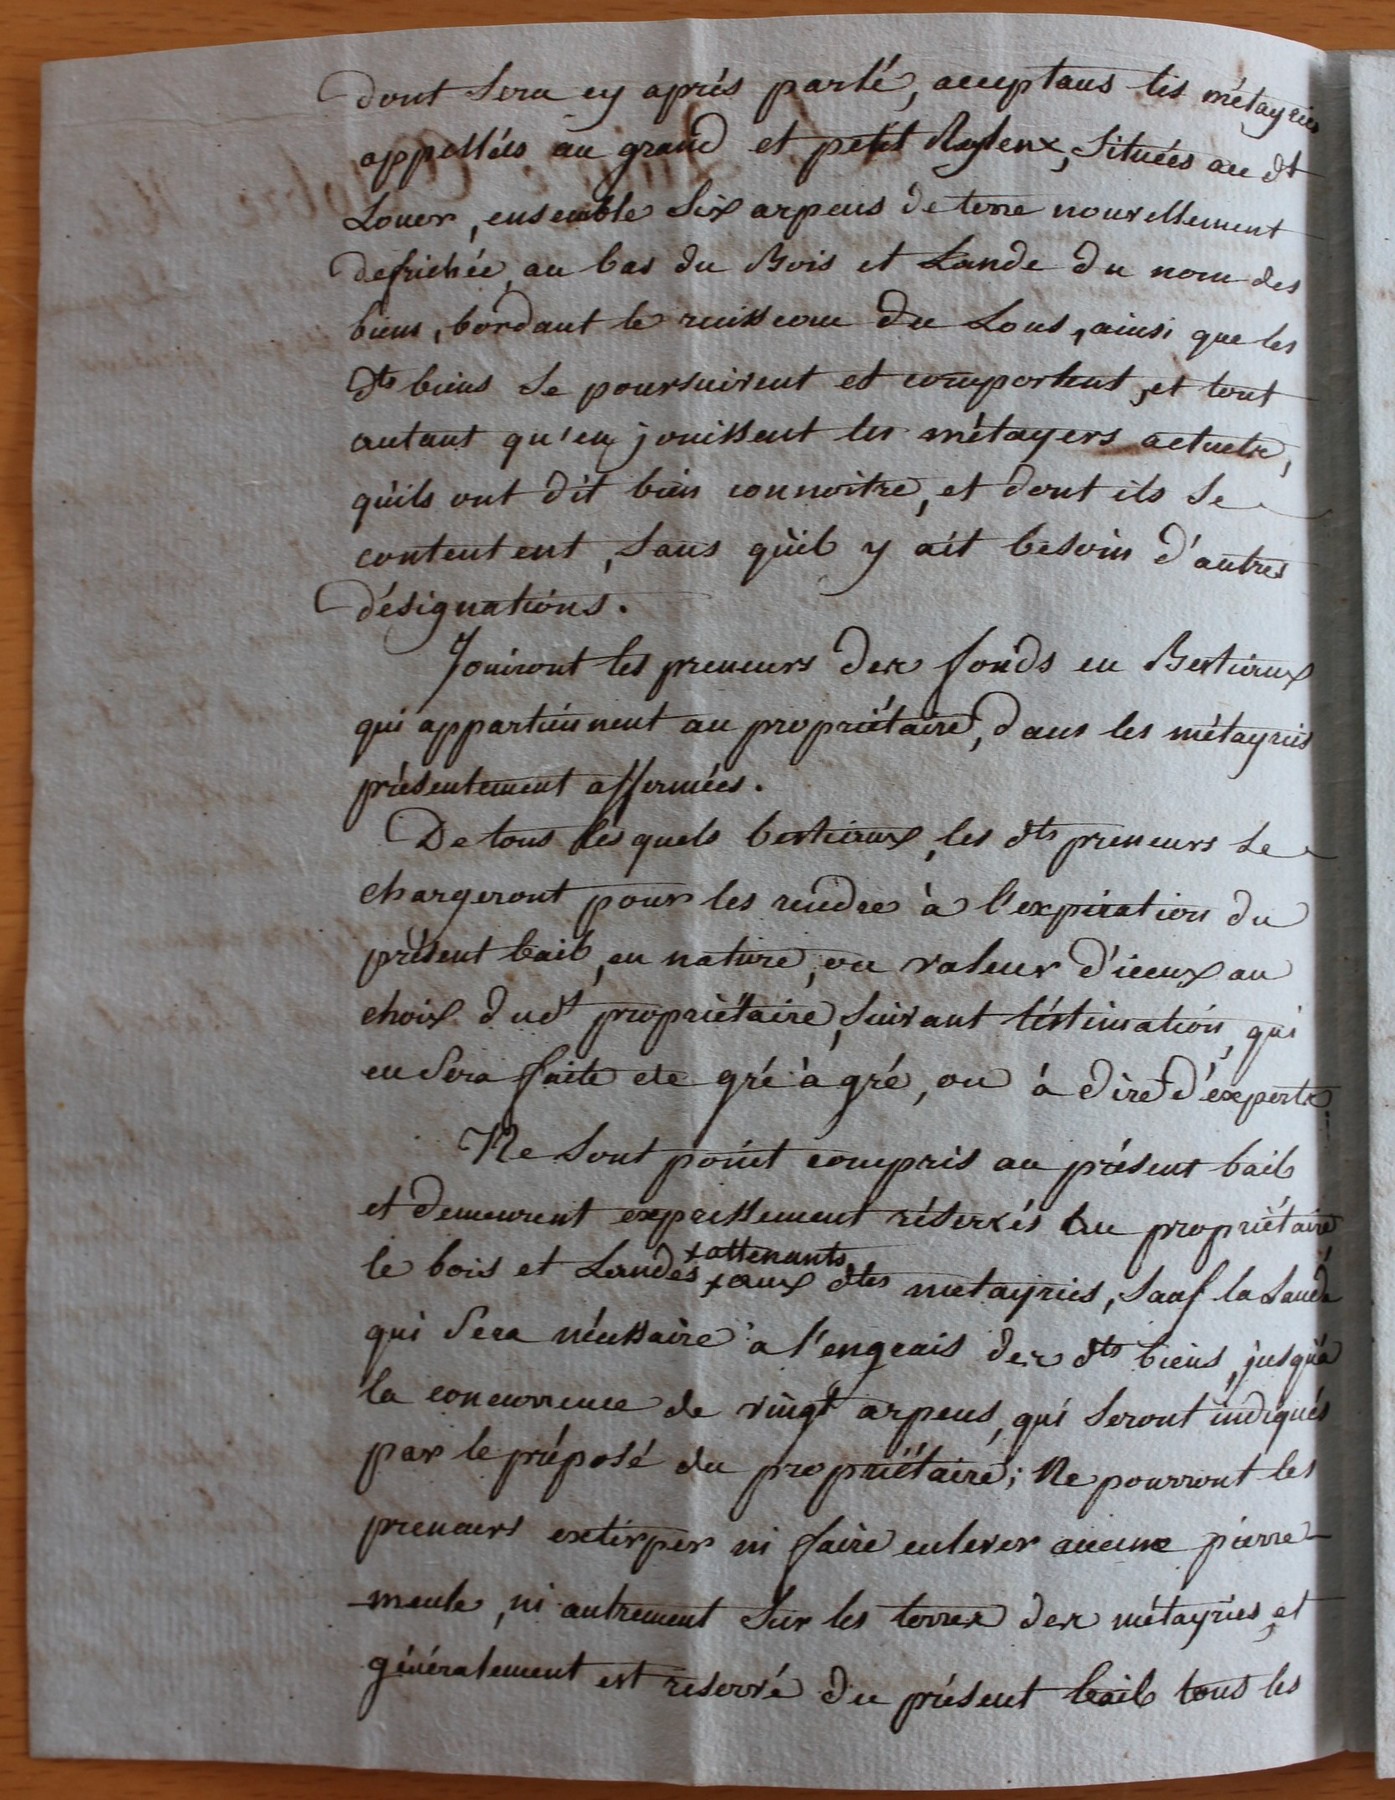 dont sera cy après parlé, acceptans les métayries
appellées au grand et petit situées au dt
Louer, ensemble six arpens de terre nouvellement
defrichée, au bas du Bois et Lande du nom des
biens, bordant le ruisseau du Lous, ainsi que les
dts biens se poursuivent et comportent, et tout
autant qu'en jouissent les métayers actuels,
qu'ils ont dit bien connoitre, et dont ils se
contentent, sans qu'il y ait besoin d'autres
désignations.
Jouiront les preneurs des fonds en Bestiaux
qui appartiennent au propriétaire, dans les métayries
présentement affermées.
De tous lesquels bestiaux, les dts preneurs se
chargeront pour les rendre à l'expiration du
présent bail, en nature, ou valeur d'iceux au
choix dudt propriétaire, suivant l'éstimation, qui
en sera faite de gré à gré, ou à dire d'experts
Ne sont point compris au présent bail
et demeurent expressement réservés au propriétaire
le bois et Landes + attenants
+ aux dtes metayries, sauf la Lande
qui sera nécessaire à l'engrais des dts biens, jusqu'à
la concurrence de vingt arpens, qui seront indiqués
par le préposé du propriétaire; Ne pourront les
preneurs extirper ni faire enlever aucune pierre
meule, ni autrement sur les terres des métayries, et
généralement est reservé du présent bail tous les